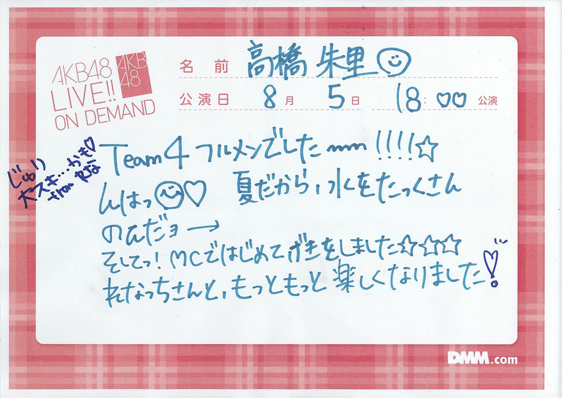 AKB48
LIVE!!
ON DEMAND
AKB
48
名前 高橋朱里
公演日 8月 5日 18:00 公演
じゅり
大スキ…かも♡
from
Team4 フルメンでしたーーー!!!!☆
んはっ♡ 夏だから、水をたっくさん
のんだョ→
そしてっ!MCではじめてげきをしました☆☆☆
れなっちさんと、もっともっと楽しくなりました!
DMM.com